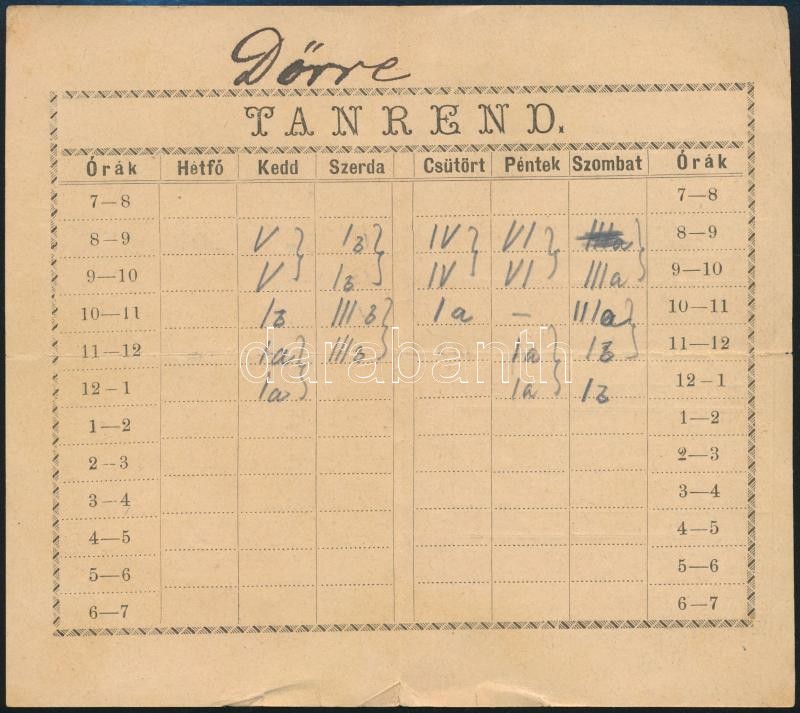 Dörre
TANREND.
Órák Hétfő Kedd Szerda Csütört Péntek Szombat Órák
7—8 7—8
8—9 V Ib IV VI IIIa 8—9
9—10 V Ib IV VI IIIa 9—10
10—11 Ib IIIb Ia — IIIa 10—11
11—12 Ia IIIb Ia Ib 11—12
darabanth
12-1 Ia Ia Ib 12-1
1—2 1—2
2—3 2—3
3—4 3—4
4—5 4—5
5—6 5—6
6—7 6—7